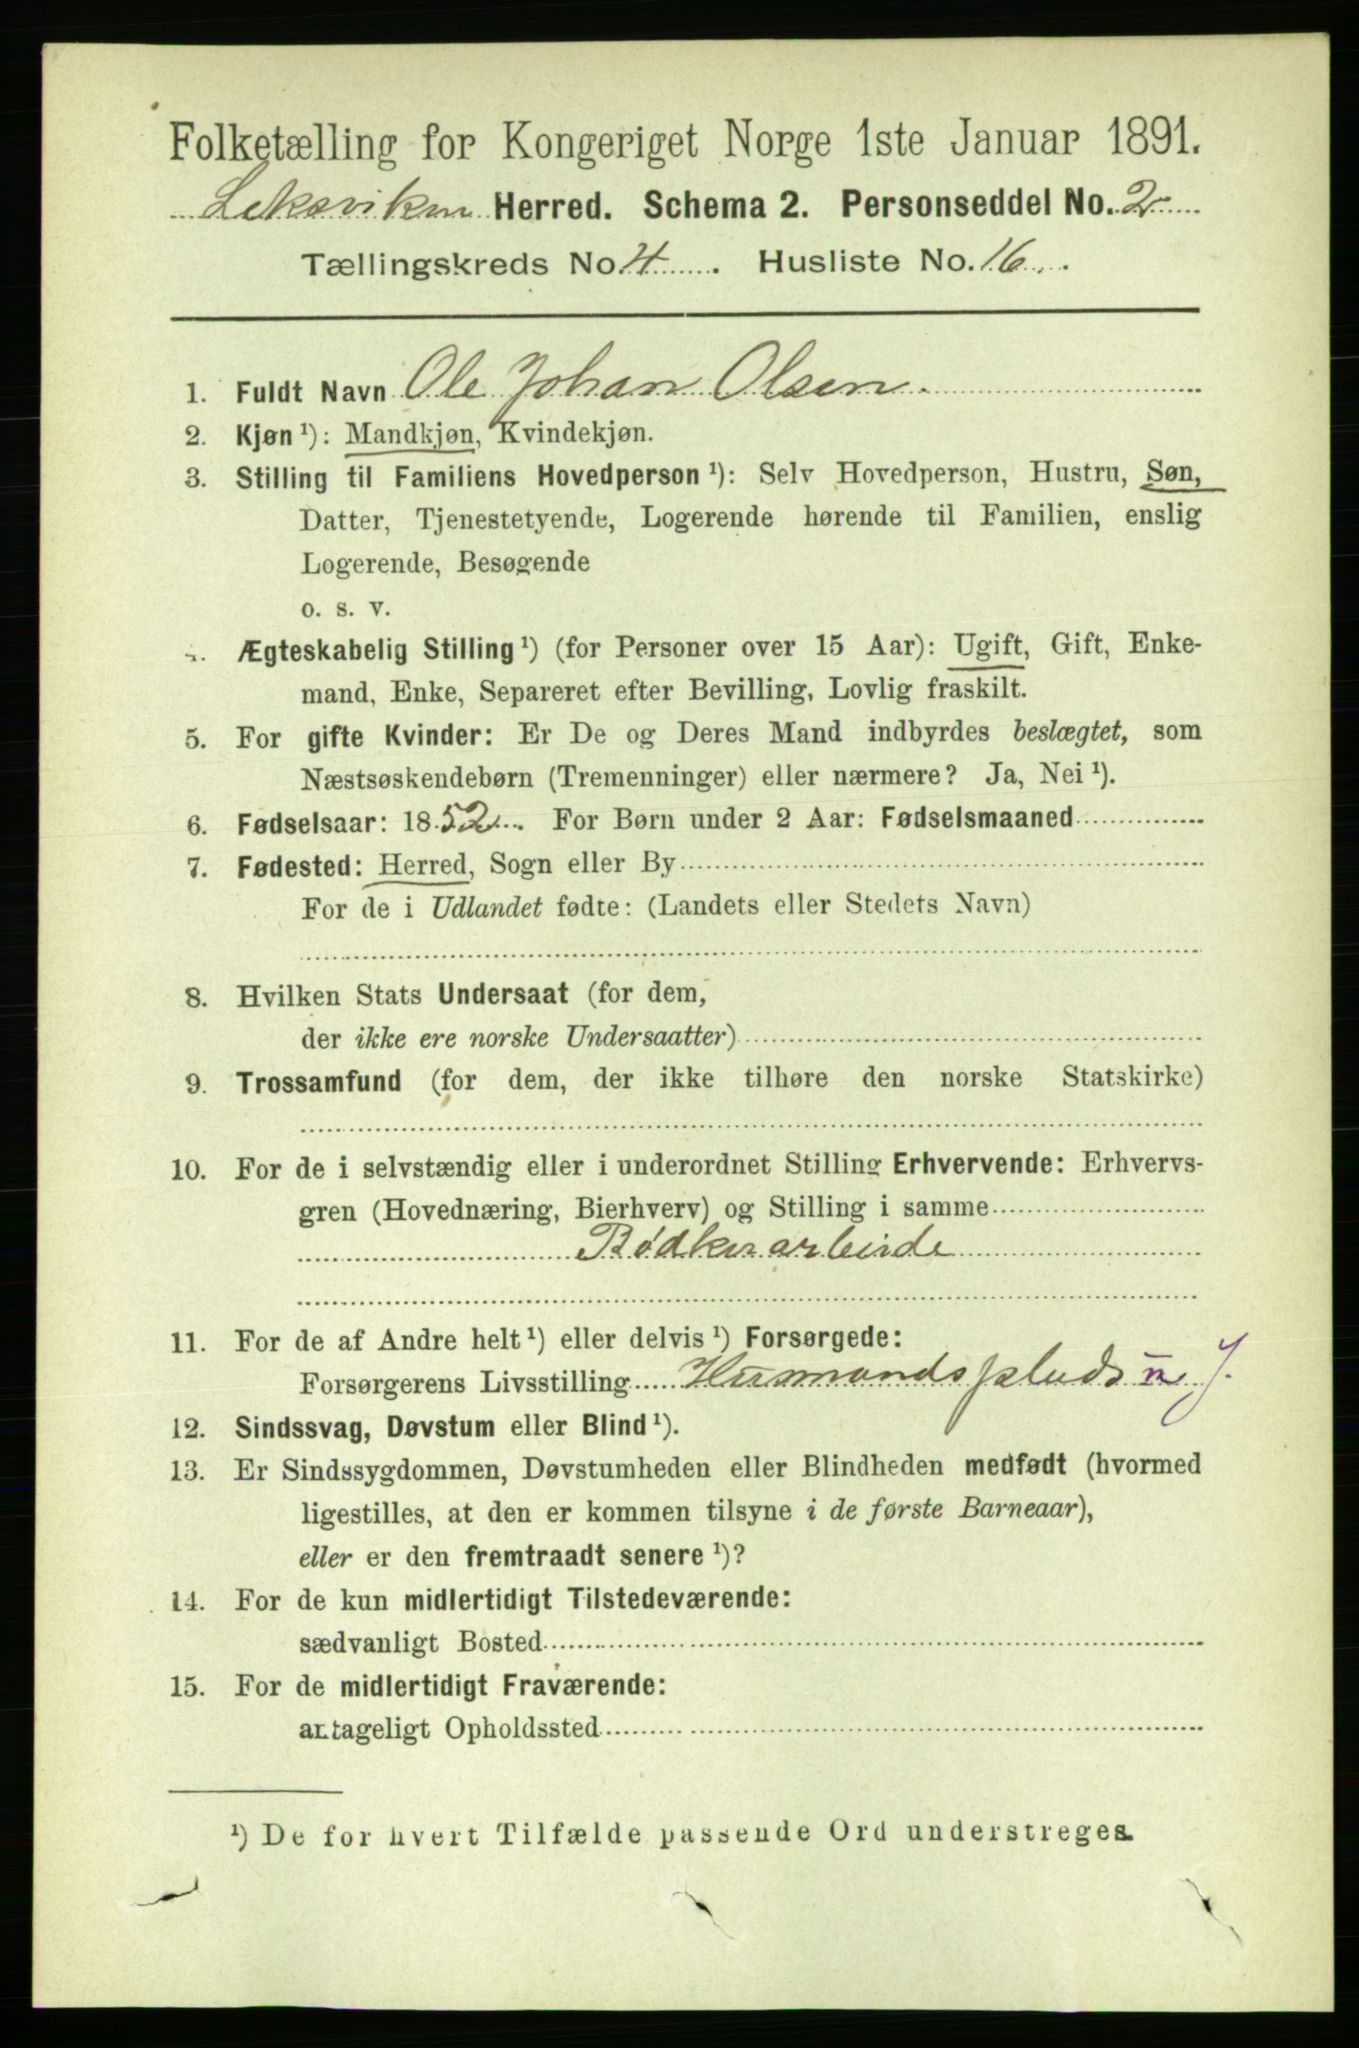 Folketælling for Kongeriget Norge 1ste Januar 1891.
Leksviken Herred. Schema 2. Personseddel No. 2
Tællingskreds No. 4. Husliste No. 16.
1. Fuldt Navn Ole Johan Olsen.
2. Kjøn ¹): Mandkjøn, Kvindekjøn.
3. Stilling til Familiens Hovedperson ¹): Selv Hovedperson, Hustru, Søn,
Datter, Tjenestetyende, Logerende hørende til Familien, enslig
Logerende, Besøgende
o. s. v.
4. Ægteskabelig Stilling ¹) (for Personer over 15 Aar): Ugift, Gift, Enke-
mand, Enke, Separeret efter Bevilling, Lovlig fraskilt.
5. For gifte Kvinder: Er De og Deres Mand indbyrdes beslægtet, som
Næstsøskendebørn (Tremenninger) eller nærmere? Ja, Nei ¹).
6. Fødselsaar: 1852. For Børn under 2 Aar: Fødselsmaaned
7. Fødested: Herred, Sogn eller By
For de i Udlandet fødte: (Landets eller Stedets Navn)
8. Hvilken Stats Undersaat (for dem,
der ikke ere norske Undersaatter)
9. Trossamfund (for dem, der ikke tilhøre den norske Statskirke)
10. For de i selvstændig eller i underordnet Stilling Erhvervende: Erhvervs-
gren (Hovednæring, Bierhverv) og Stilling i samme
Bødkerarbeide
11. For de af Andre helt ¹) eller delvis ¹) Forsørgede:
Forsørgerens Livsstilling Husmandsplads m J.
12. Sindssvag, Døvstum eller Blind ¹).
13. Er Sindssygdommen, Døvstumheden eller Blindheden medfødt (hvormed
ligestilles, at den er kommen tilsyne i de første Barneaar),
eller er den fremtraadt senere ¹)?
14. For de kun midlertidigt Tilstedeværende:
sædvanligt Bosted
15. For de midlertidigt Fraværende:
antageligt Opholdssted
¹) De for hvert Tilfælde passende Ord understreges.